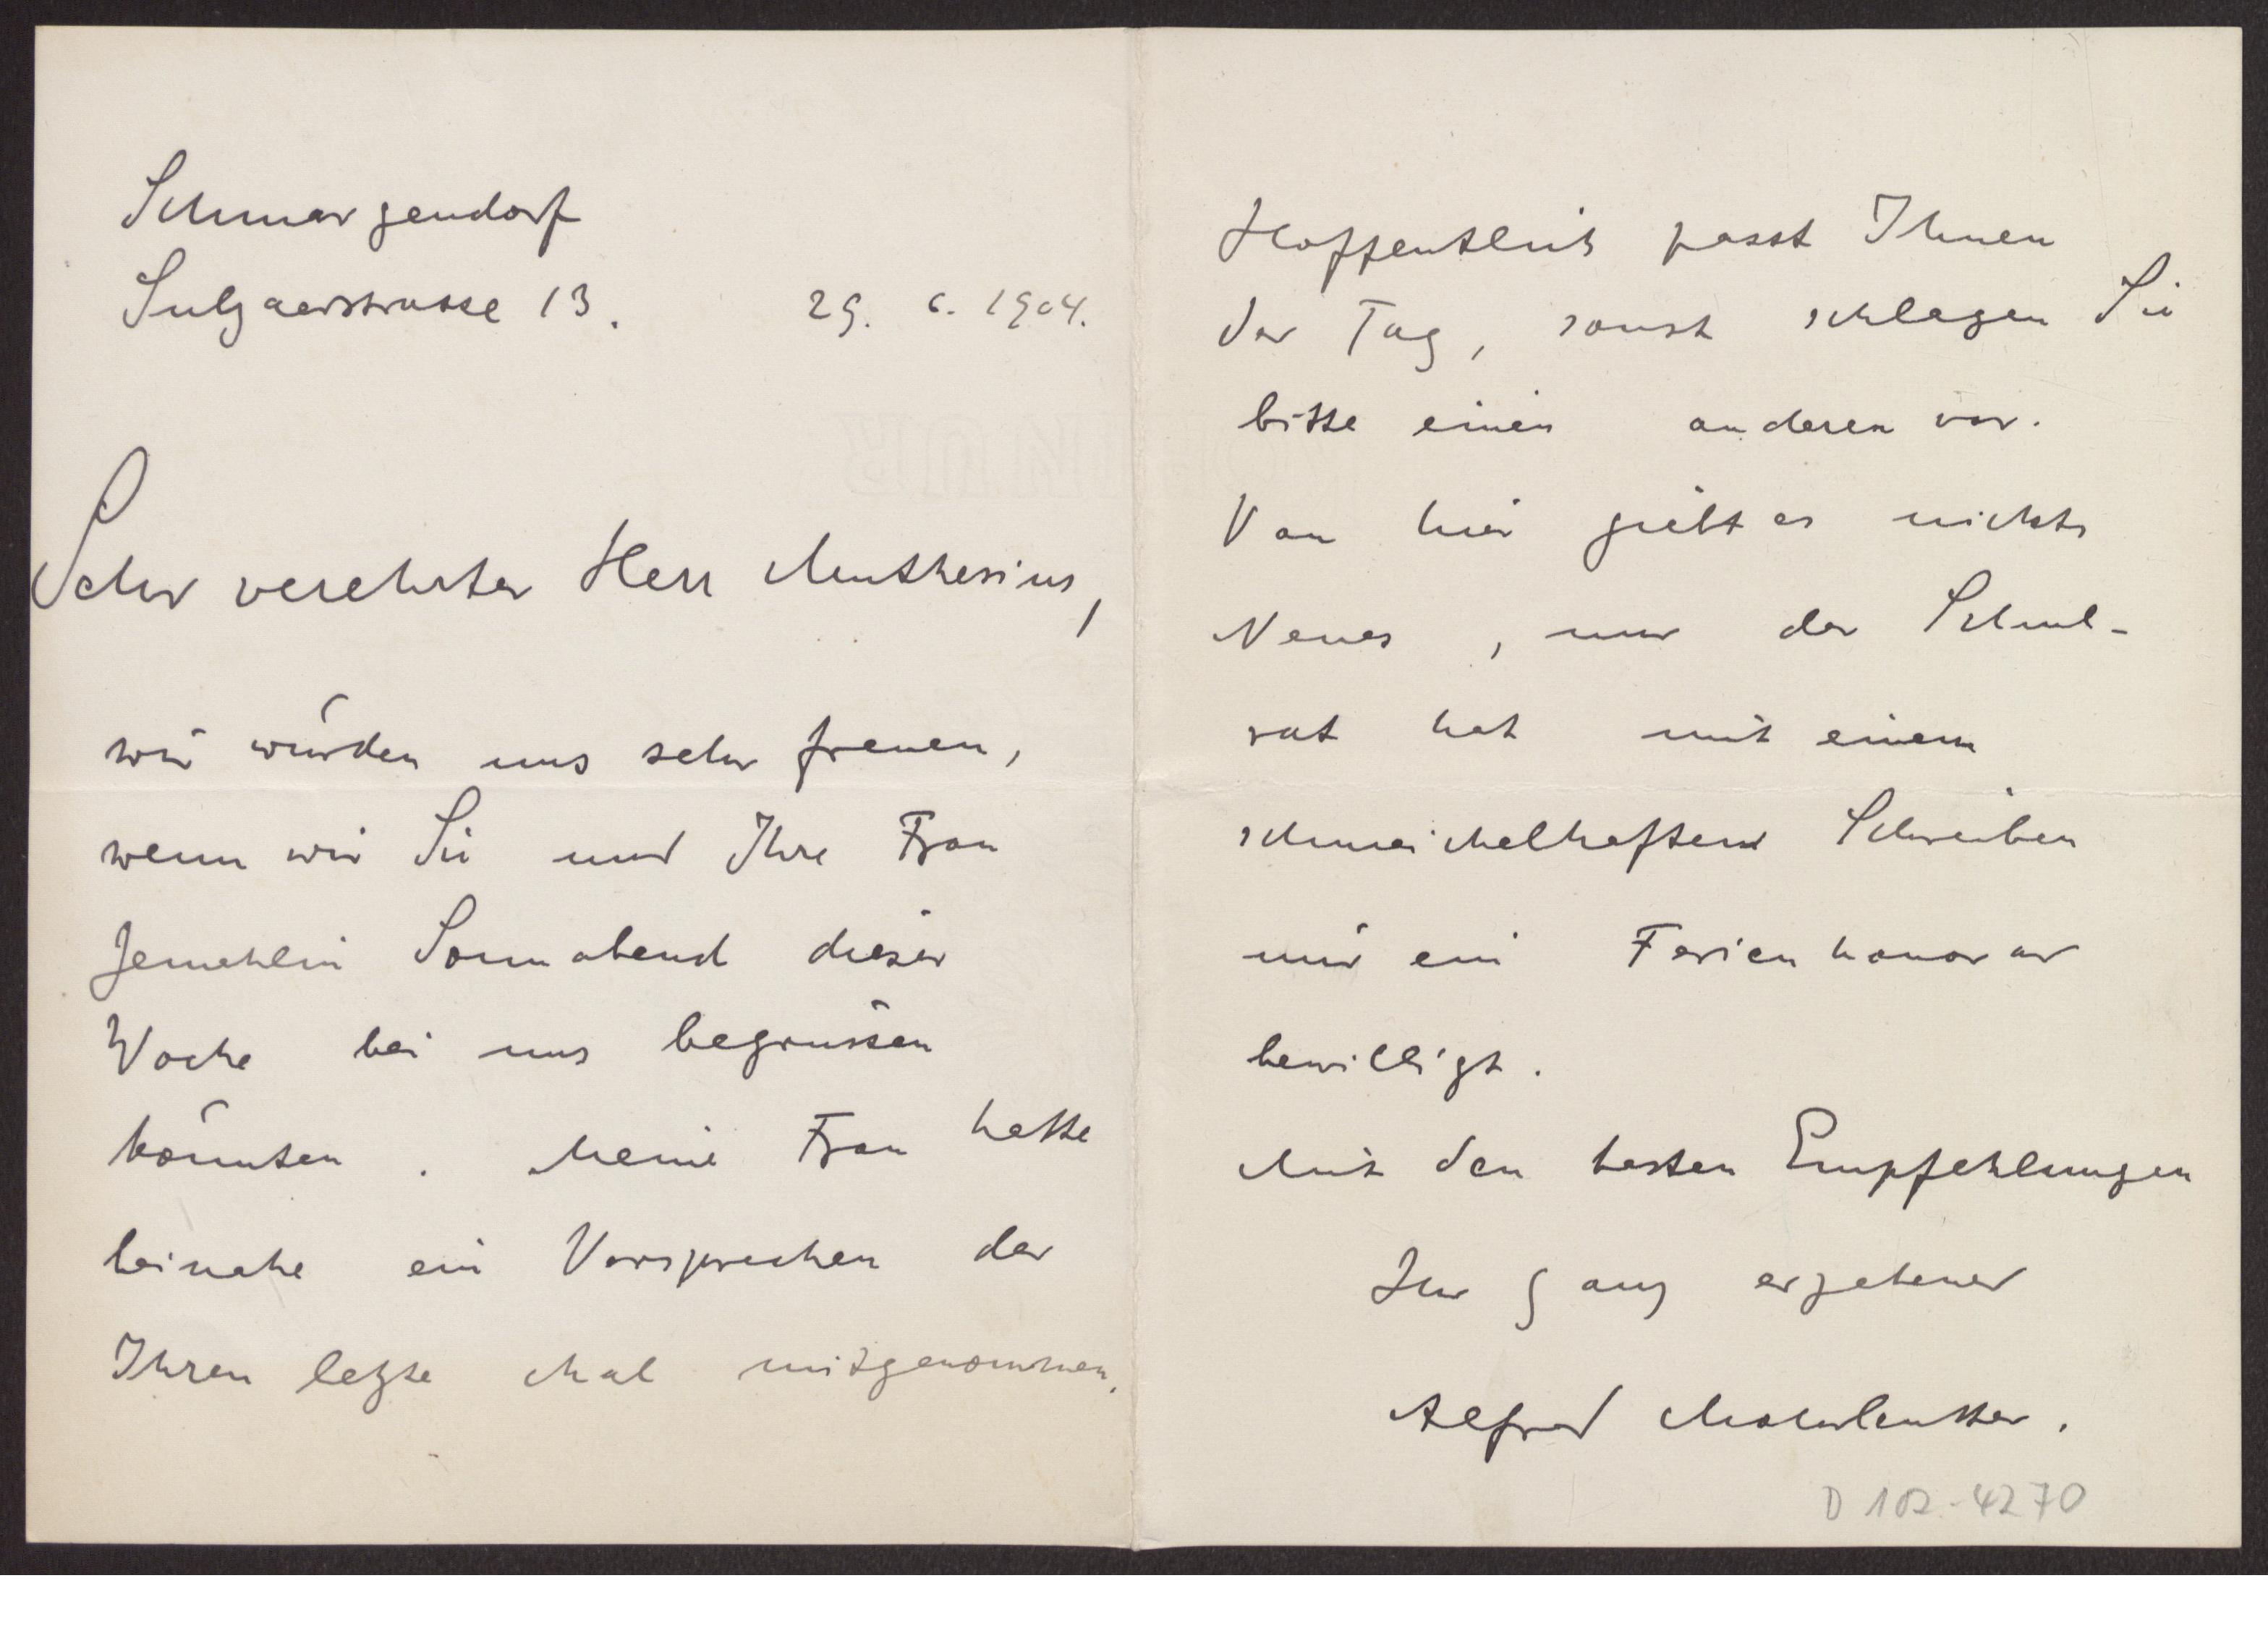 Schmargendorf
Sulzaerstrasse 13. 29. 6. 1904.
Sehr verehrter Herr Muthesius,
wir würden uns sehr freuen,
wenn wir Sie und Ihre Frau
Gemahlin Sonnabend dieser
Woche bei uns begrüssen
könnten. Meine Frau hatte
beinahe ein Versprechen der
Ihren letzte Mal mitgenommen.
Hoffentlich passt Ihnen
der Tag, sonst schlagen Sie
bitte einen anderen vor.
Von hier giebt es nichts
Neues, nur der Schul-
rat hat mit einem
schmeichelhaften Schreiben
mir ein Ferienhonorar
bewilligt.
Mit den besten Empfehlungen
Ihr ganz ergebener
Alfred Mohrbutter.
D 102-4270